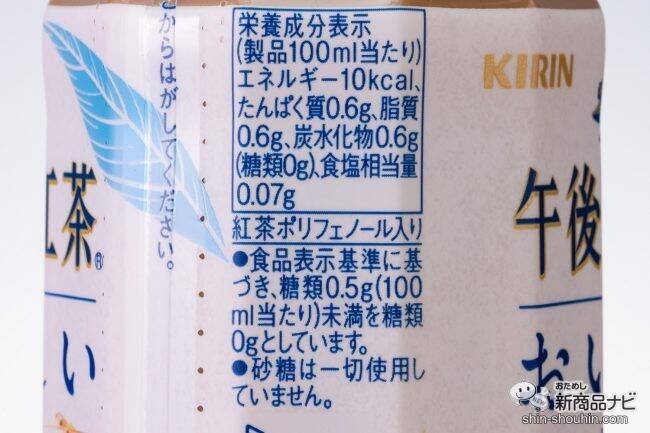 栄養成分表示
(製品100ml当たり)
エネルギー10kcal、
たんぱく質0.6g、脂質
0.6g、炭水化物0.6g
(糖類0g)、食塩相当量
0.07g
紅茶ポリフェノール入り
●食品表示基準に基
づき、糖類0.5g(100
ml当たり)未満を糖類
0gとしています。
●砂糖は一切使用し
ていません。
からはがしてください。
紅茶®
い
KIRIN
午後
おい
おためし
新商品ナビ
shin-shouhin.com